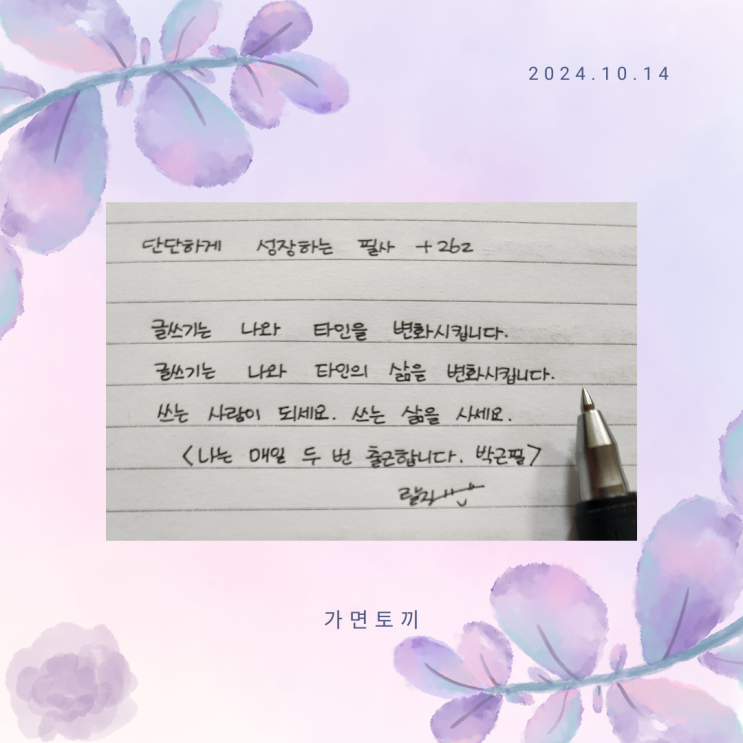 2024.10.14
단단하게 성장하는 필사 +262
글쓰기는 나와 타인을 변화시킵니다.
글쓰기는 나와 타인의 삶을 변화시킵니다.
쓰는 사람이 되세요. 쓰는 삶을 사세요.
<나는 매일 두 번 출근합니다. 박근필>
가면토끼